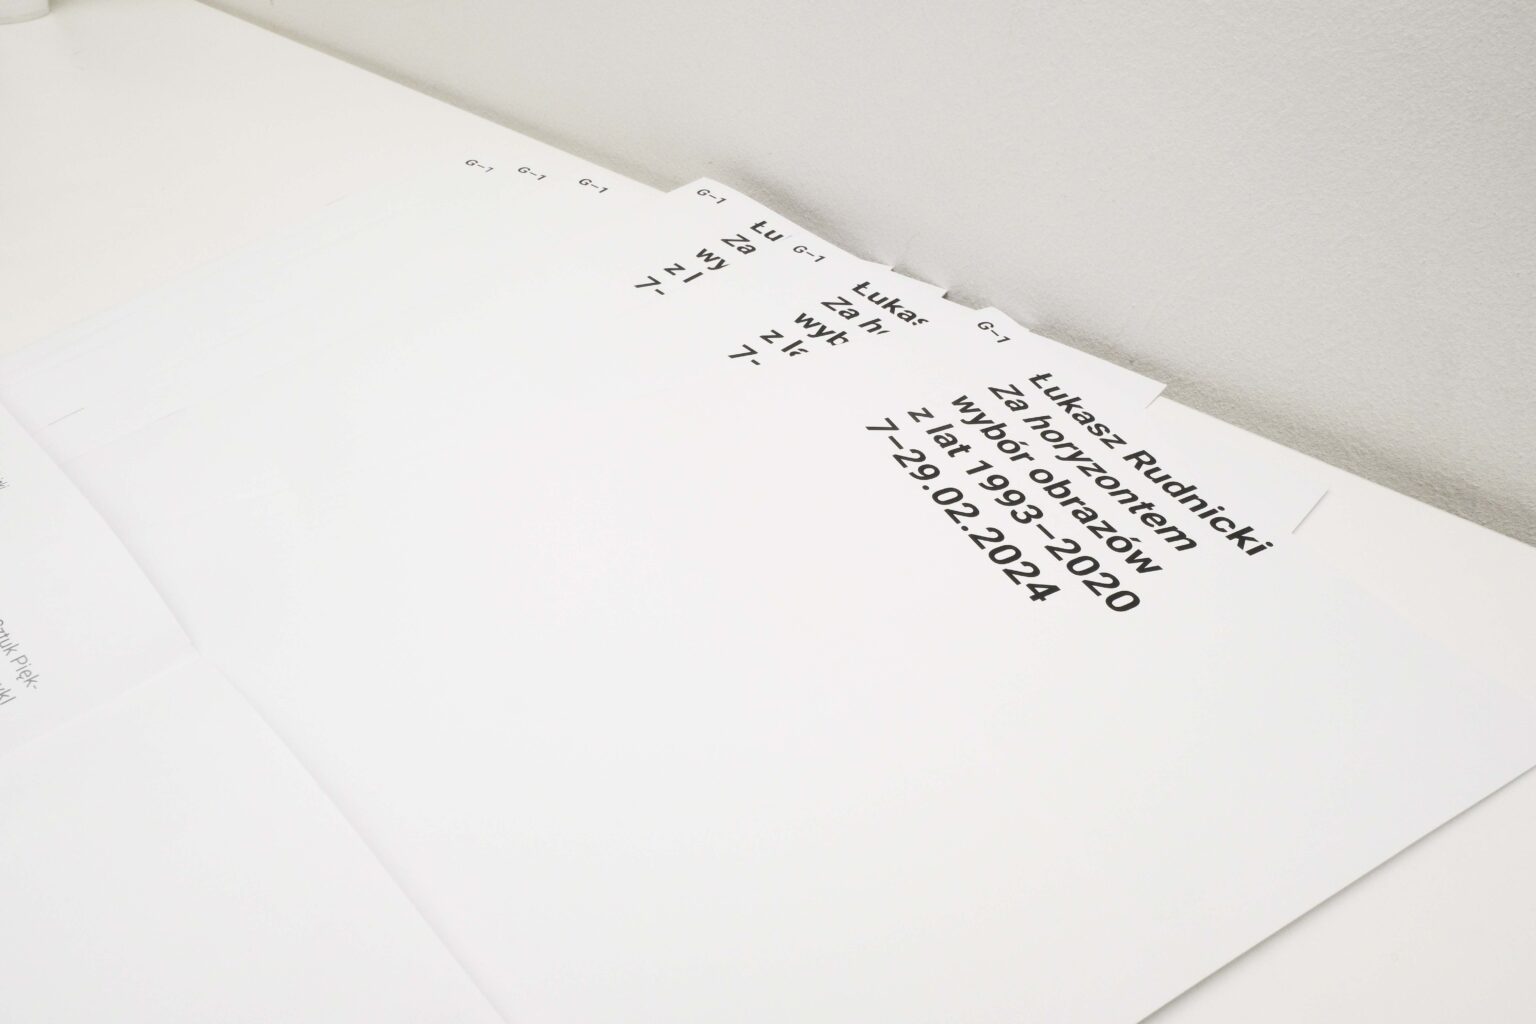 G–1
G–1
G–1
G–1
Łu
Za
wy
z l
7-
G–1
Łukas
Za h
wyb
z la
7-
G–1
Łukasz Rudnicki
Za horyzontem
wybór obrazów
z lat 1993–2020
7–29.02.2024
Sztuk Pięk-